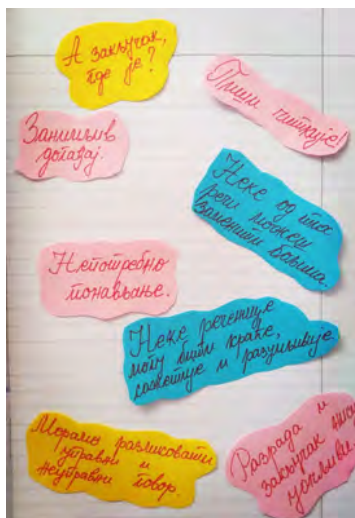 А закључак,
где је?
Пиши читкије!
Занимљив
догађај.
Неке од тих
речи можеш
заменити бољим.
Непотребно
понављање.
Неке реченице
могу бити краће,
сажетије и разумљивије.
Морамо разликовати
управни и
неуправни говор.
Разрада и
закључак нису
уочљиви.